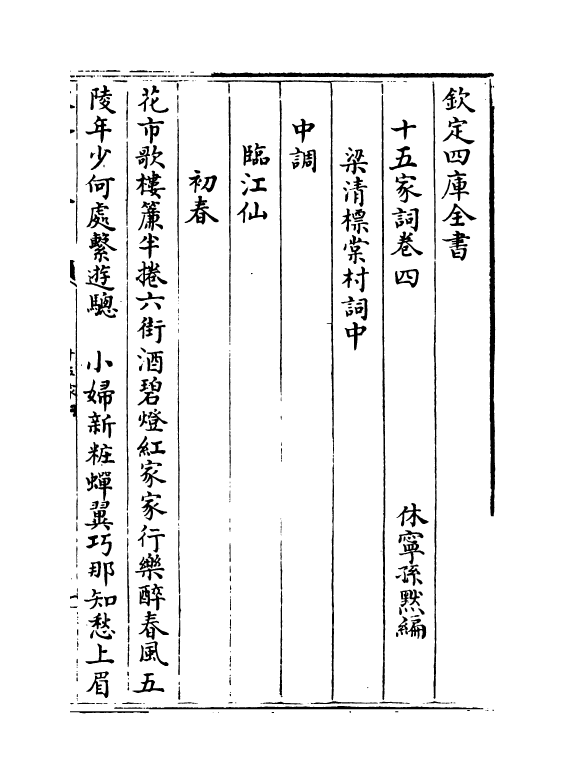 欽定四庫全書
十五家詞卷四　休寧孫默編
梁清標棠村詞中
中調
臨江仙
初春
花市歌樓簾半捲六街酒碧燈紅家家行樂醉春風五
陵年少何處繫遊驄　小婦新粧蟬翼巧那知愁上眉